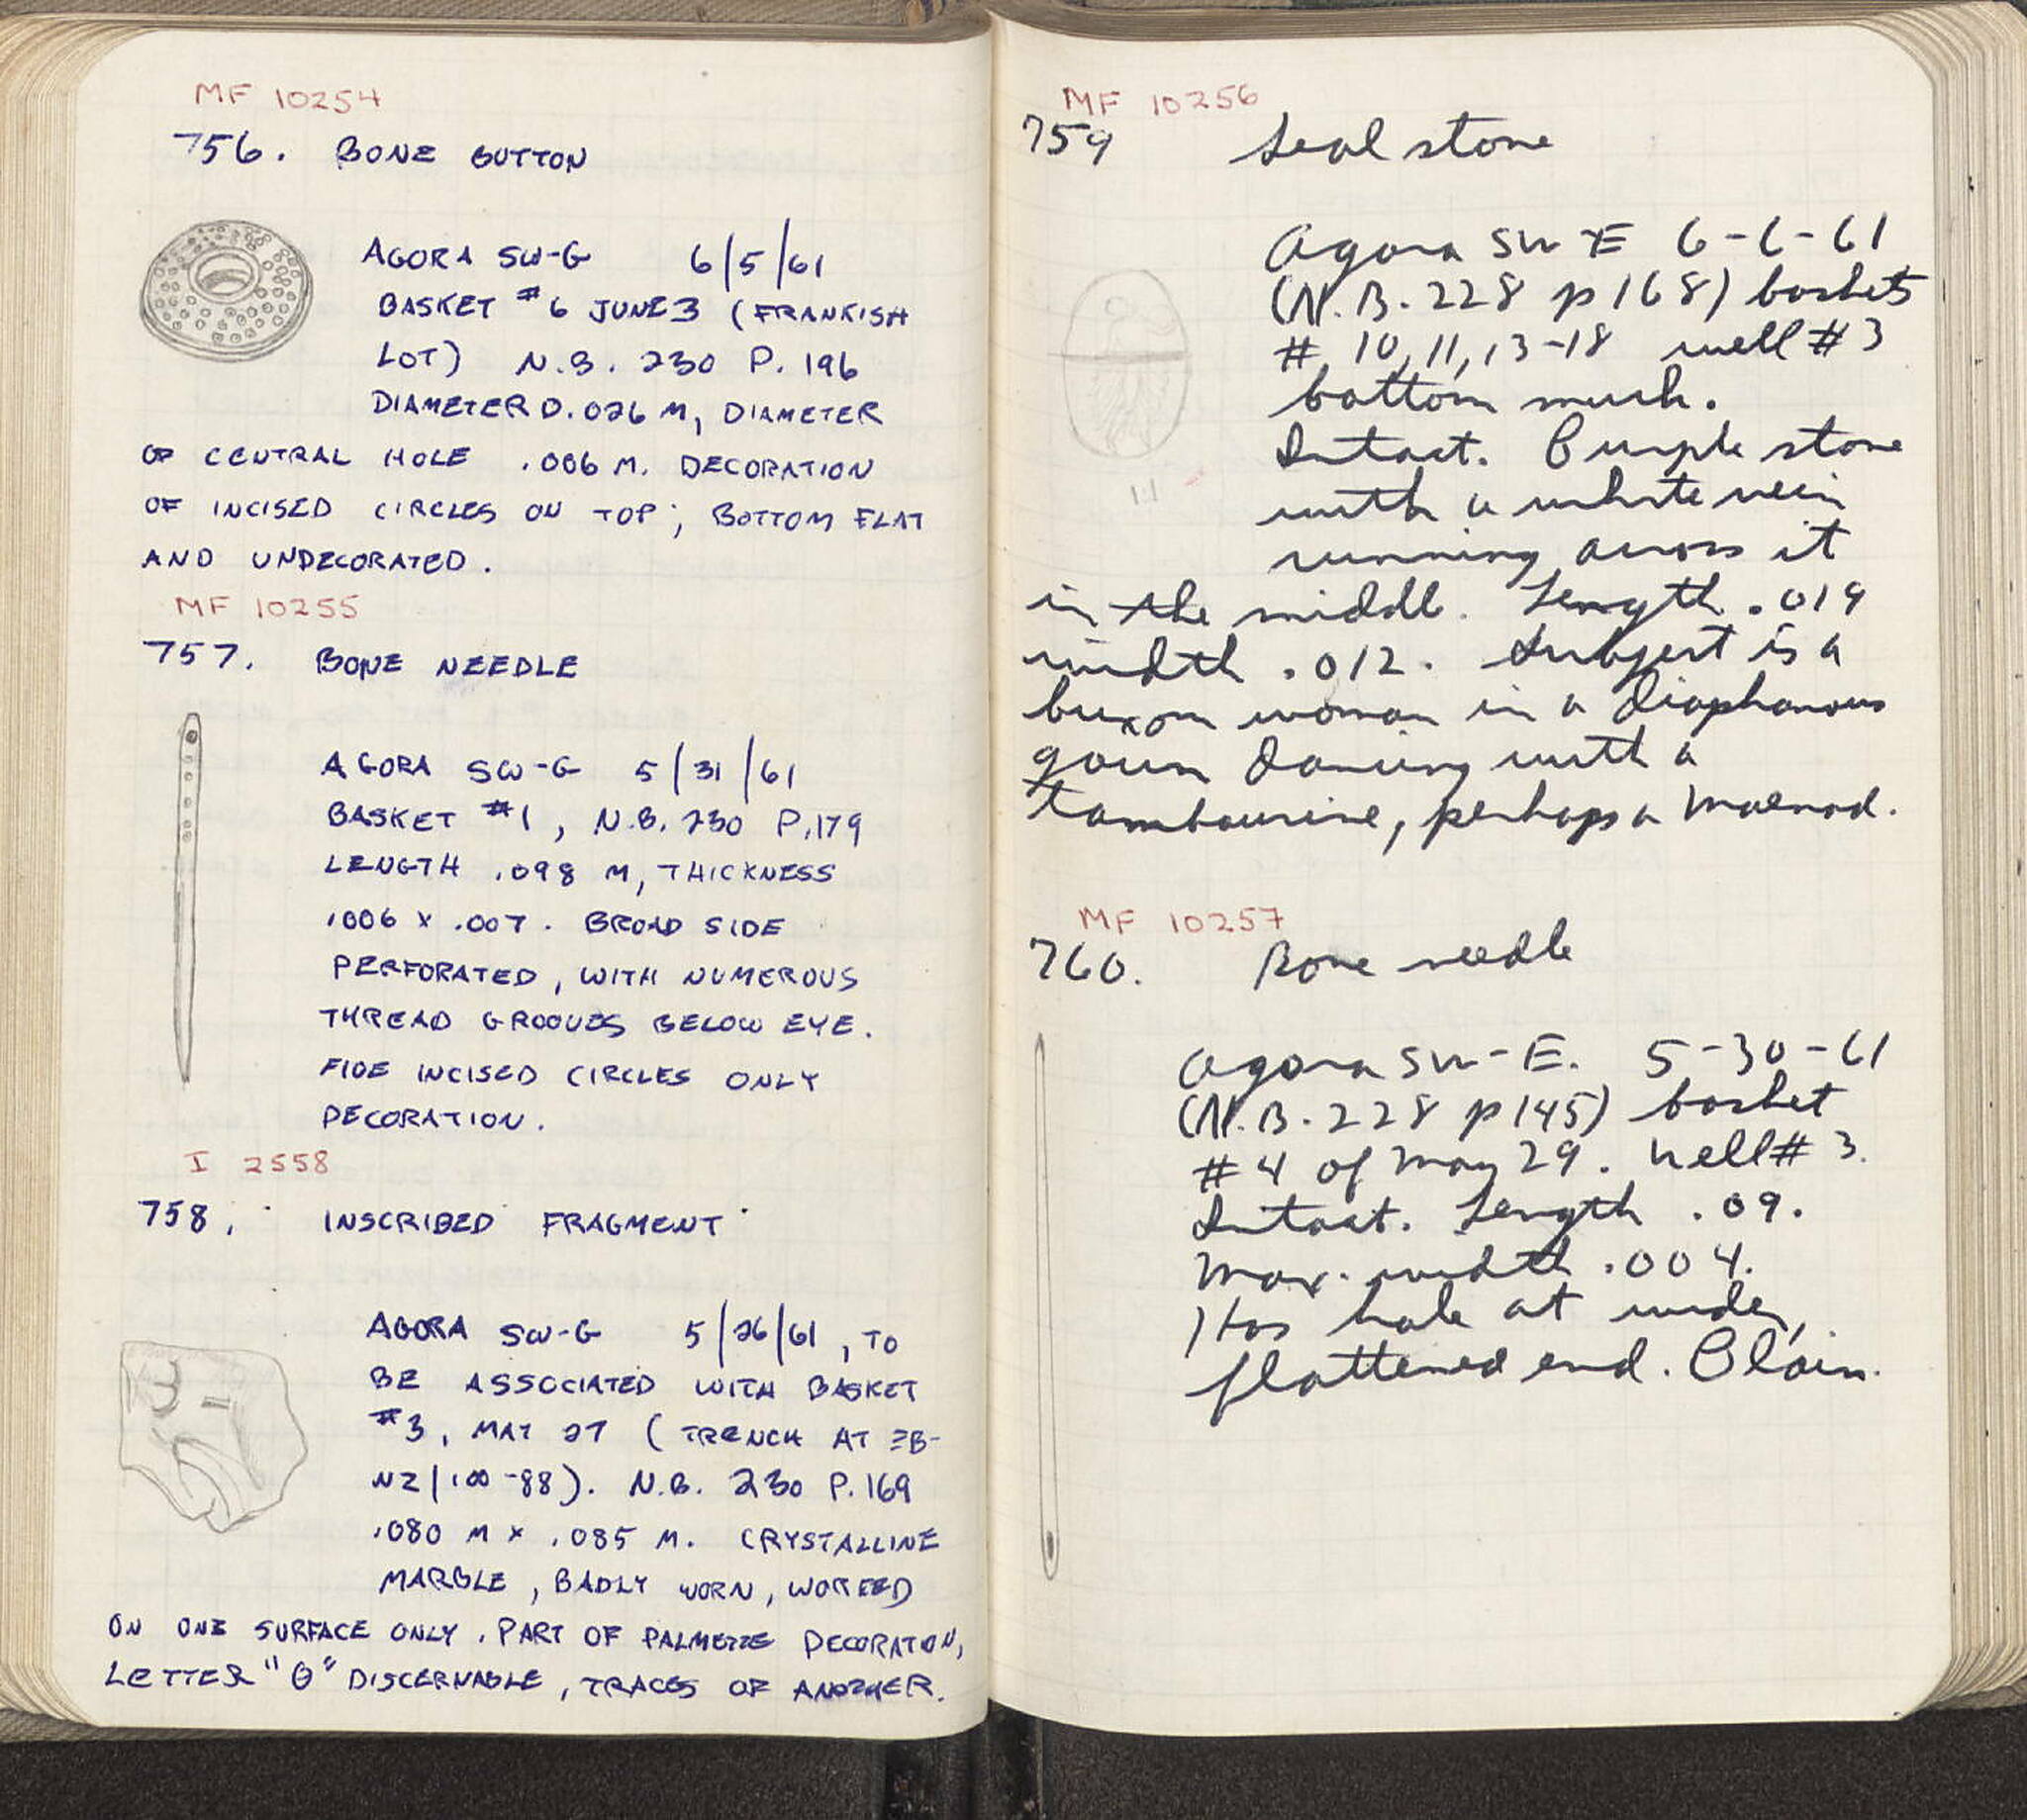 MF 10254
756. BONE BUTTON
AGORA SW-G 6/5/61
BASKET #6 JUNE 3 (FRANKISH
LOT) N.B. 230 P. 196
DIAMETER 0.026 M, DIAMETER
OF CENTRAL HOLE .006 M. DECORATION
OF INCISED CIRCLES ON TOP; BOTTOM FLAT
AND UNDECORATED.
MF 10255
757. BONE NEEDLE
AGORA SW-G 5/31/61
BASKET #1, N.B. 230 P. 179
LENGTH .098 M, THICKNESS
.006 x .007. BROAD SIDE
PERFORATED, WITH NUMEROUS
THREAD GROOVES BELOW EYE.
FIVE INCISED CIRCLES ONLY
DECORATION.
I 2558
758. INSCRIBED FRAGMENT
AGORA SW-G 5/26/61, TO
BE ASSOCIATED WITH BASKET
#3, MAY 27 (TRENCH AT
NZ/100-88). N.B. 230 P. 169
.080 M x .085 M. CRYSTALLINE
MARBLE, BADLY WORN, WORKED
ON ONE SURFACE ONLY. PART OF PALMETTE DECORATION,
LETTER "Θ" DISCERNABLE, TRACES OF ANOTHER.
MF 10256
759 Seal stone
Agora SW E 6-6-61
(N.B. 228 p 168) baskets
# 10, 11, 13-18 well #3
bottom muck.
Intact. Purple stone
with a white vein
running across it
in the middle. Length .019
width .012. Subject is a
buxom woman in a diaphanous
gown dancing with a
tambourine, perhaps a Maenad.
1:1
MF 10257
760. Bone needle
Agora SW-E. 5-30-61
(N.B. 228 p 145) basket
#4 of May 29. Well #3.
Intact. Length .09.
Max. width .004.
Has hole at wider,
flattened end. Plain.